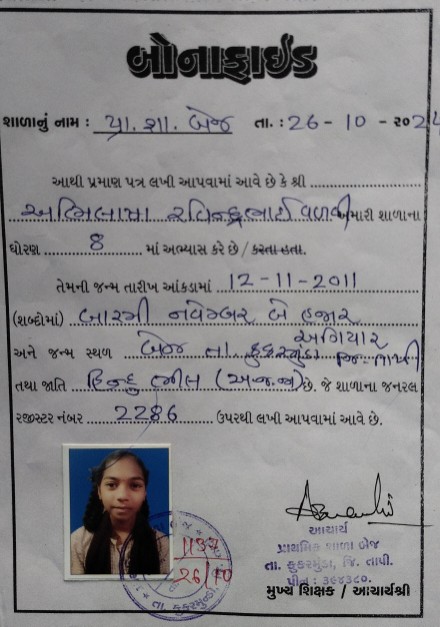 બોનાફાઈડ
શાળાનું નામ : પ્રા. શા. બેજ તા. : 26 - 10 - ૨૦
આથી પ્રમાણ પત્ર લખી આપવામાં આવે છે કે શ્રી
અભિલાષા રવિન્દ્રભાઈ વળવી અમારી શાળાના
ધોરણ 8 માં અભ્યાસ કરે છે / કરતા હતા.
તેમની જન્મ તારીખ આંકડામાં 12 - 11 - 2011
(શબ્દોમાં) બારમી નવેમ્બર બે હજાર
અગિયાર
અને જન્મ સ્થળ બેજ તા. કુકરમુંડા જિ. તાપી
તથા જાતિ હિન્દુ ભીલ (અ.જ.જા) છે. જે શાળાના જનરલ
રજીસ્ટર નંબર 2286 ઉપરથી લખી આપવામાં આવે છે.
26/10
તા. કુકરમુંડા
આચાર્ય
પ્રાથમિક શાળા બેજ
તા. કુકરમુંડા, જિ. તાપી.
પીન : ૩૯૪૩૮૦.
મુખ્ય શિક્ષક / આચાર્યશ્રી